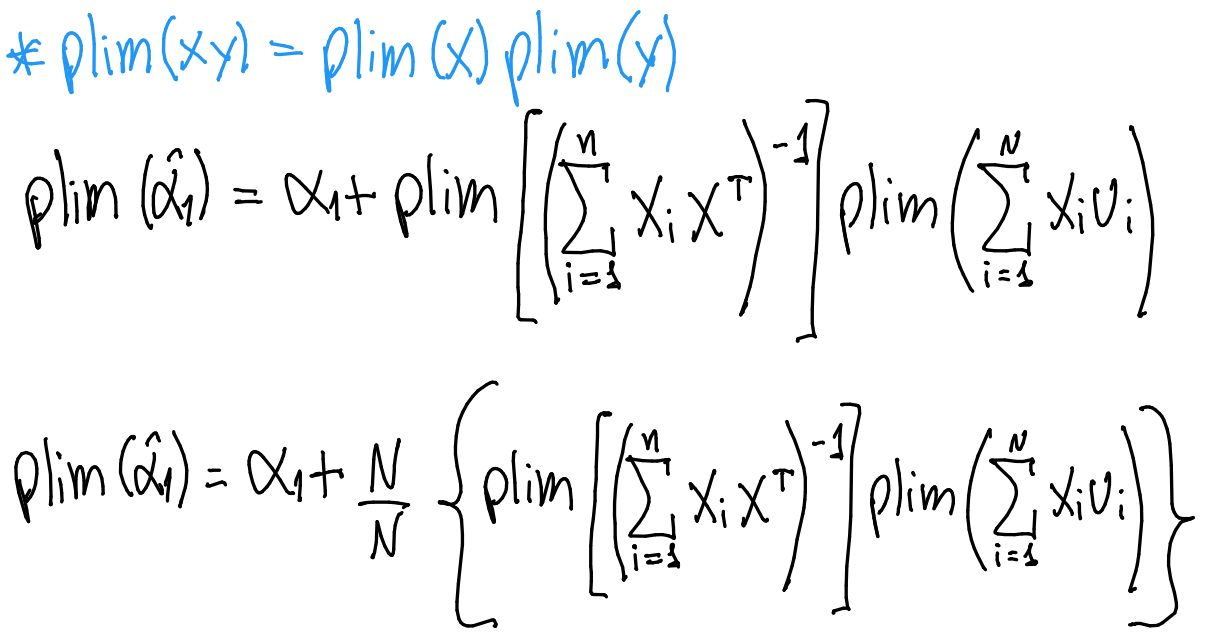 * plim(xy) = plim(x) plim(y)
plim(α̂₁) = α₁ + plim[(∑_{i=1}^{n} X_i X^T)^{-1}] plim(∑_{i=1}^{N} X_i U_i)
plim(α̂₁) = α₁ + N/N {plim[(∑_{i=1}^{n} X_i X^T)^{-1}] plim(∑_{i=1}^{N} X_i U_i)}